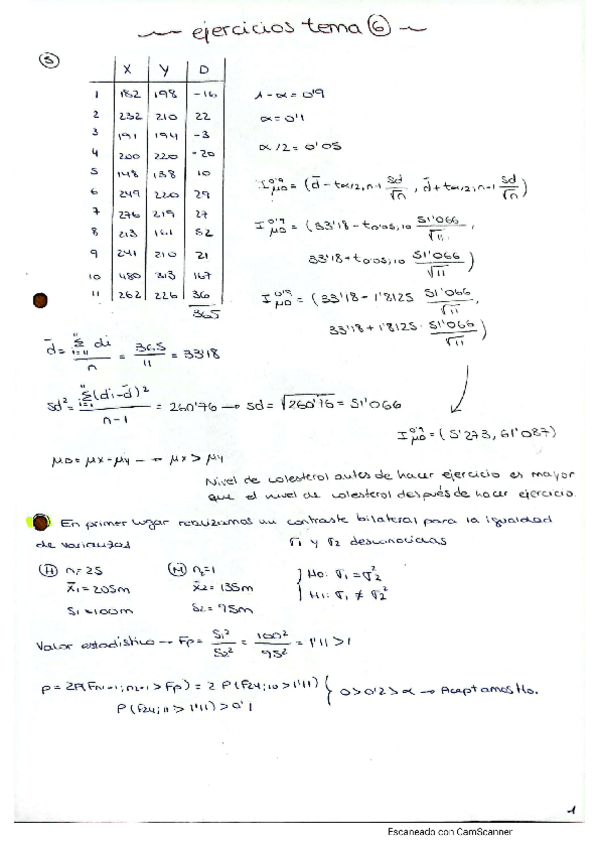 ejercicios tema 6
5
X Y D
1 182 198 -16
2 232 210 22
3 191 194 -3
4 200 220 -20
5 148 138 10
6 249 220 29
7 276 219 27
8 213 161 52
9 241 210 31
10 480 313 167
11 262 226 36
365
1-α = 0'9
α = 0'1
α/2 = 0'05
I μD 0'9 = (d̄ - tα/2, n-1 Sd/√n , d̄ + tα/2, n-1 Sd/√n)
I μD 0'9 = (33'18 - t0'05, 10 51'066/√11 ,
33'18 + t0'05, 10 51'066/√11)
I μD 0'9 = (33'18 - 1'8125 51'066/√11 ,
33'18 + 1'8125 · 51'066/√11)
d̄ = Σ di / n = 365/11 = 33'18
Sd² = Σ(di - d̄)² / n-1 = 260'76 → Sd = √260'76 = 51'066
I μD 0'9 = (5'273, 61'087)
μD = μX - μY → μX > μY
Nivel de colesterol antes de hacer ejercicio es mayor
que el nivel de colesterol después de hacer ejercicio.
En primer lugar realizamos un contraste bilateral para la igualdad
de varianzas σ1 y σ2 desconocidas
(H) n1 = 25 (M) n2=1
x̄1 = 205m x̄2 = 135m
S1 = 100m S2 = 95m
H0: σ1 = σ2²
H1: σ1 ≠ σ2²
Valor estadístico → Fp = S1²/S2² = 100²/95² = 1'11 > 1
P = 2P(Fn1-1; n2-1 > Fp) = 2 P(F24; 10 > 1'11) } 0 > 0'2 > α → Aceptamos H0.
P(F24; 11 > 1'11) > 0'1
1
Escaneado con CamScanner